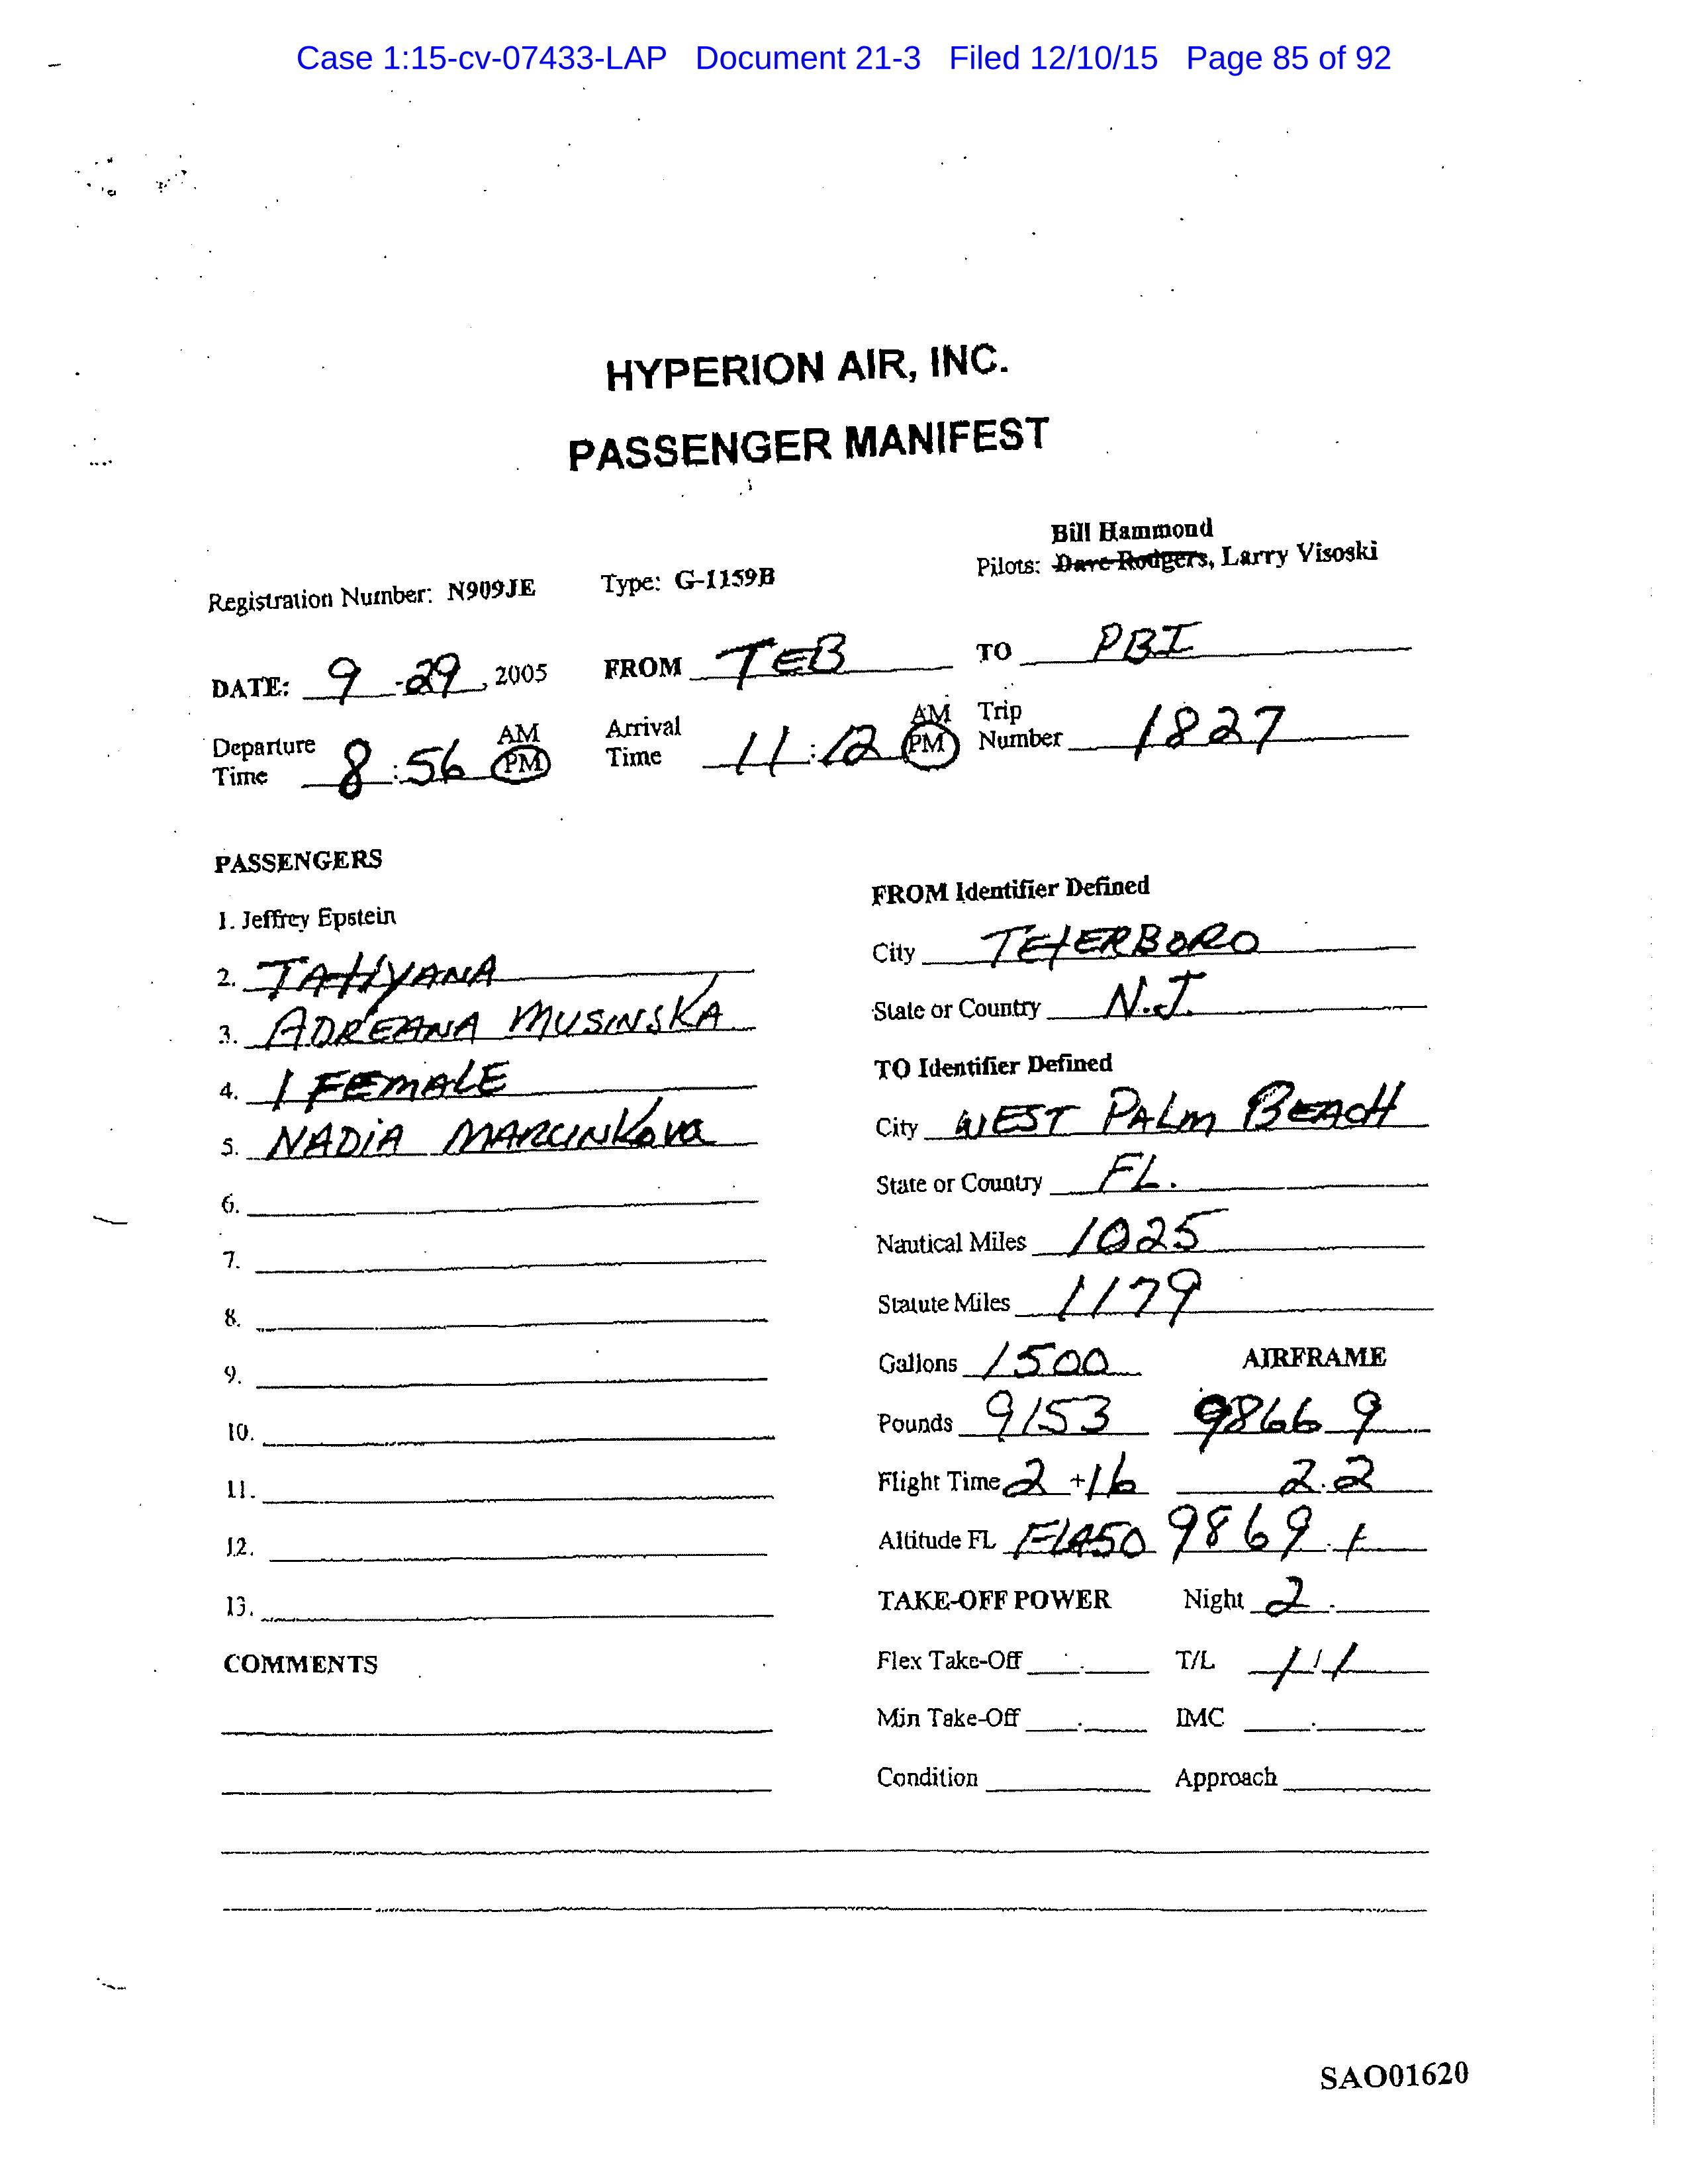 Case 1:15-cv-07433-LAP Document 21-3 Filed 12/10/15 Page 85 of 92
HYPERION AIR, INC.
PASSENGER MANIFEST
Bill Hammond
Registration Number: N909JE Type: G-1159B Pilots: Dave Rodgers, Larry Visoski
DATE: 9-29, 2005 FROM TEB TO PBI
Departure Time 8:56 AM PM Arrival Time 11:12 AM PM Trip Number 1827
PASSENGERS
1. Jeffrey Epstein
2. TATIYANA
3. ADREANA MUSINSKA
4. 1 FEMALE
5. NADIA MARCINKOVA
6.
7.
8.
9.
10.
11.
12.
13.
COMMENTS
FROM Identifier Defined
City TETERBORO
State or Country N.J.
TO Identifier Defined
City WEST PALM BEACH
State or Country FL.
Nautical Miles 1025
Statute Miles 1179
Gallons 1500 AIRFRAME
Pounds 9153 9866 9
Flight Time 2+16 2.2
Altitude FL FL450 9869.1
TAKE-OFF POWER Night 2.
Flex Take-Off T/L 1/1
Min Take-Off IMC
Condition Approach
SAO01620